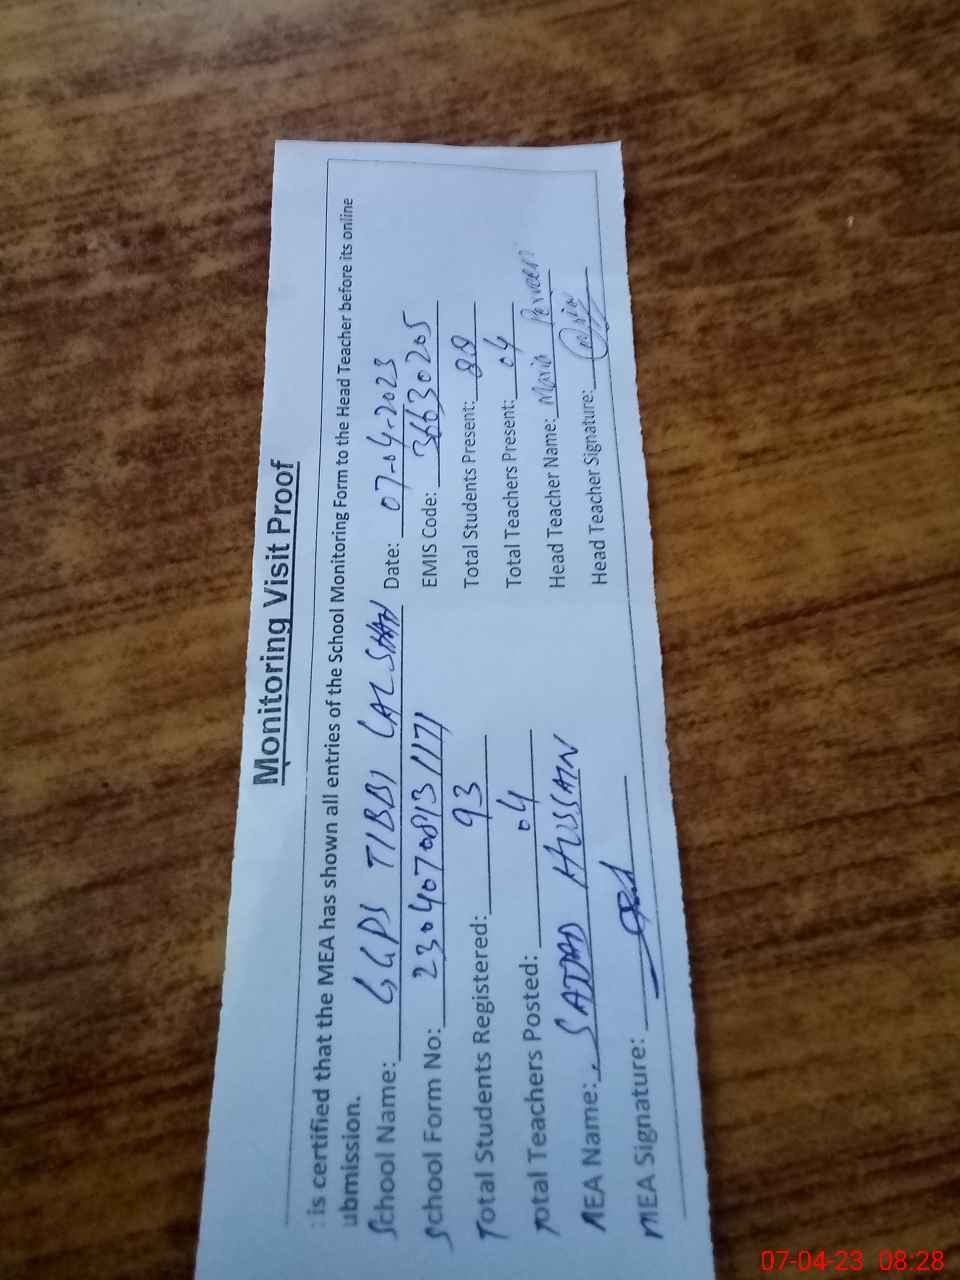 Monitoring Visit Proof
is certified that the MEA has shown all entries of the School Monitoring Form to the Head Teacher before its online
ubmission.
School Name: GGPS TIBBI LAL SHAH Date: 07-04-2023
School Form No: 23040708131171 EMIS Code: 36630205
Total Students Registered: 93 Total Students Present: 88
Total Teachers Posted: 04 Total Teachers Present: 04
MEA Name: SAJJAD HUSSAIN Head Teacher Name: Maria Parveen
MEA Signature: Head Teacher Signature:
07-04-23 08:28